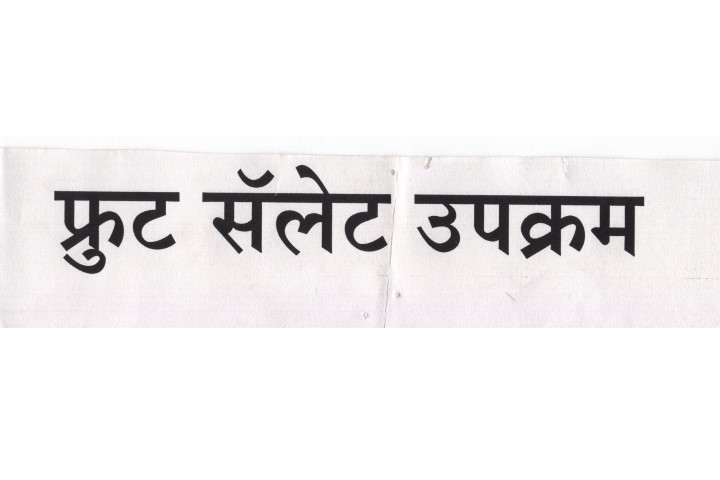 फ्रुट सॅलेट उपक्रम